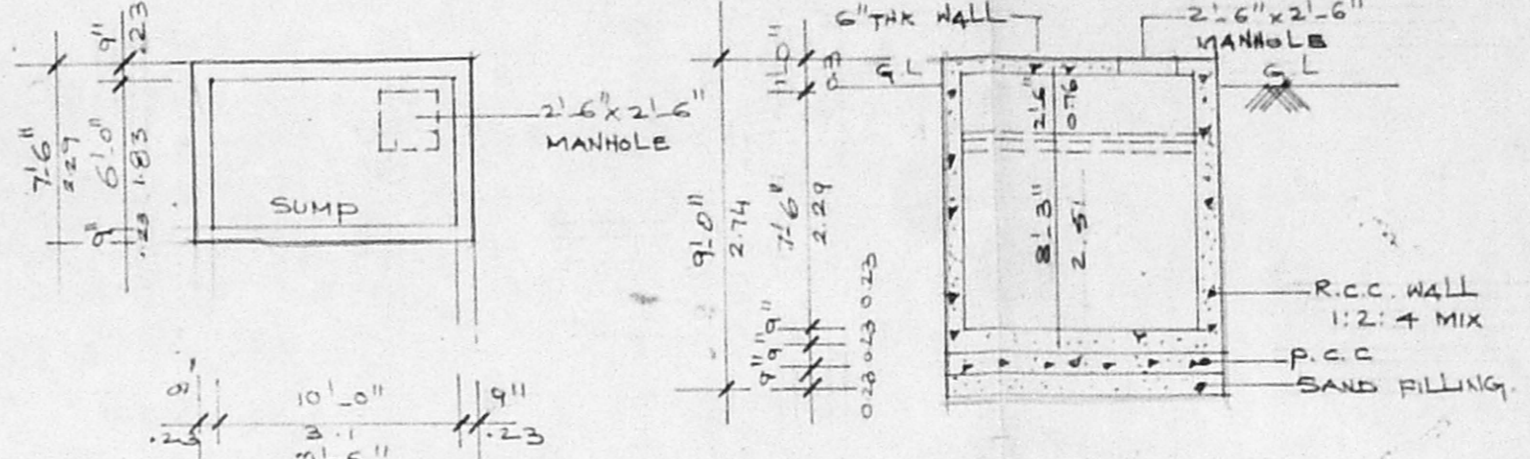 9"
.23
7'-6"
2.29
6'-0"
1.83
9"
.23
2'-6" x 2'-6"
MANHOLE
SUMP
9"
.23
10'-0"
3.1
9"
.23
6" THK WALL
2'-6" x 2'-6"
MANHOLE
1'-0"
G.L
G.L
2'-6"
0.76
9'-0"
2.74
7'-6"
2.29
8'-3"
2.51
9"
9"
9"
0.23
0.23
0.23
R.C.C. WALL
1:2:4 MIX
P.C.C
SAND FILLING.